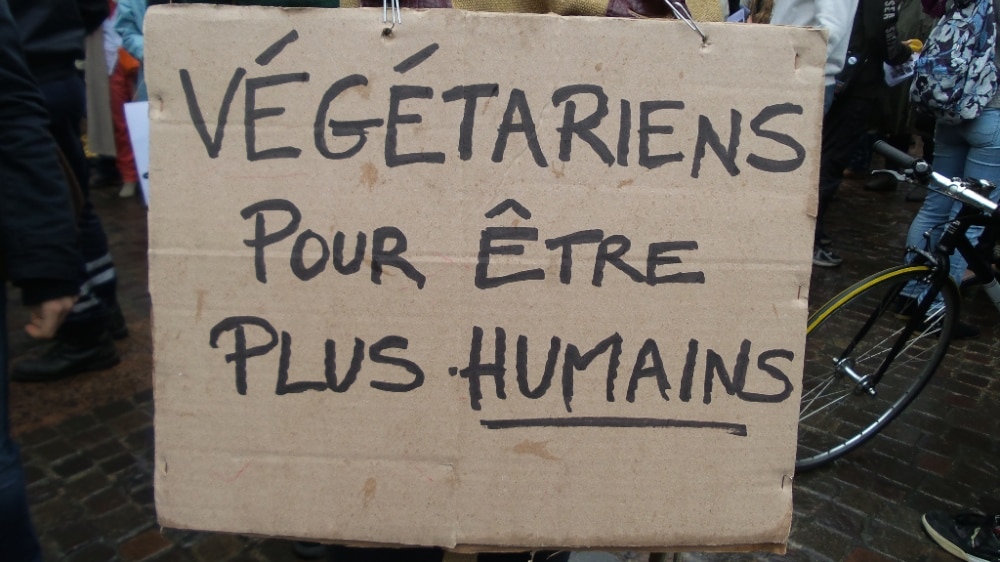 VÉGÉTARIENS
POUR ÊTRE
PLUS HUMAINS